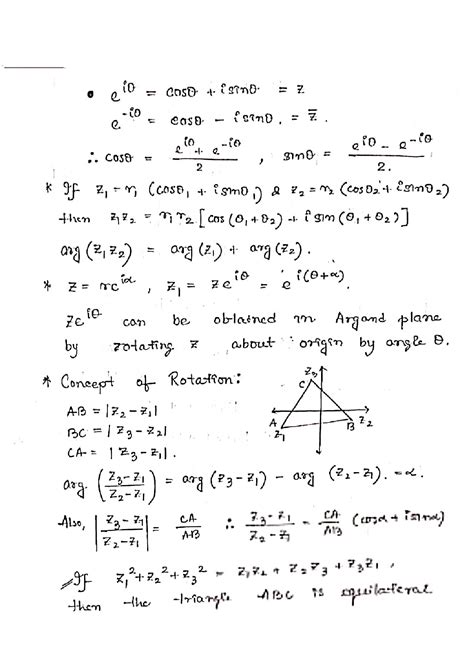 • e^{iθ} = cosθ + isinθ = z
e^{-iθ} = cosθ - isinθ. = z̄.
∴ cosθ = (e^{iθ} + e^{-iθ})/2 , sinθ = (e^{iθ} - e^{-iθ})/2.
* If z₁ = r₁ (cosθ₁ + isinθ₁) & z₂ = r₂ (cosθ₂ + isinθ₂)
then z₁z₂ = r₁r₂ [cos(θ₁+θ₂) + i sin(θ₁+θ₂)]
arg(z₁z₂) = arg(z₁) + arg(z₂).
* z = re^{iα} , z₁ = ze^{iθ} = e^{i(θ+α)}.
ze^{iθ} can be obtained in Argand plane
by rotating z about origin by angle θ.
* Concept of Rotation:
z₃
C
A
z₁
B z₂
AB = |z₂-z₁|
BC = |z₃-z₂|
CA = |z₃-z₁|.
arg. ((z₃-z₁)/(z₂-z₁)) = arg(z₃-z₁) - arg (z₂-z₁). = α.
Also, |(z₃-z₁)/(z₂-z₁)| = CA/AB ∴ (z₃-z₁)/(z₂-z₁) = CA/AB (cosα + isinα)
If z₁² + z₂² + z₃² = z₁z₂ + z₂z₃ + z₃z₁ ,
then the triangle ABC is equilateral